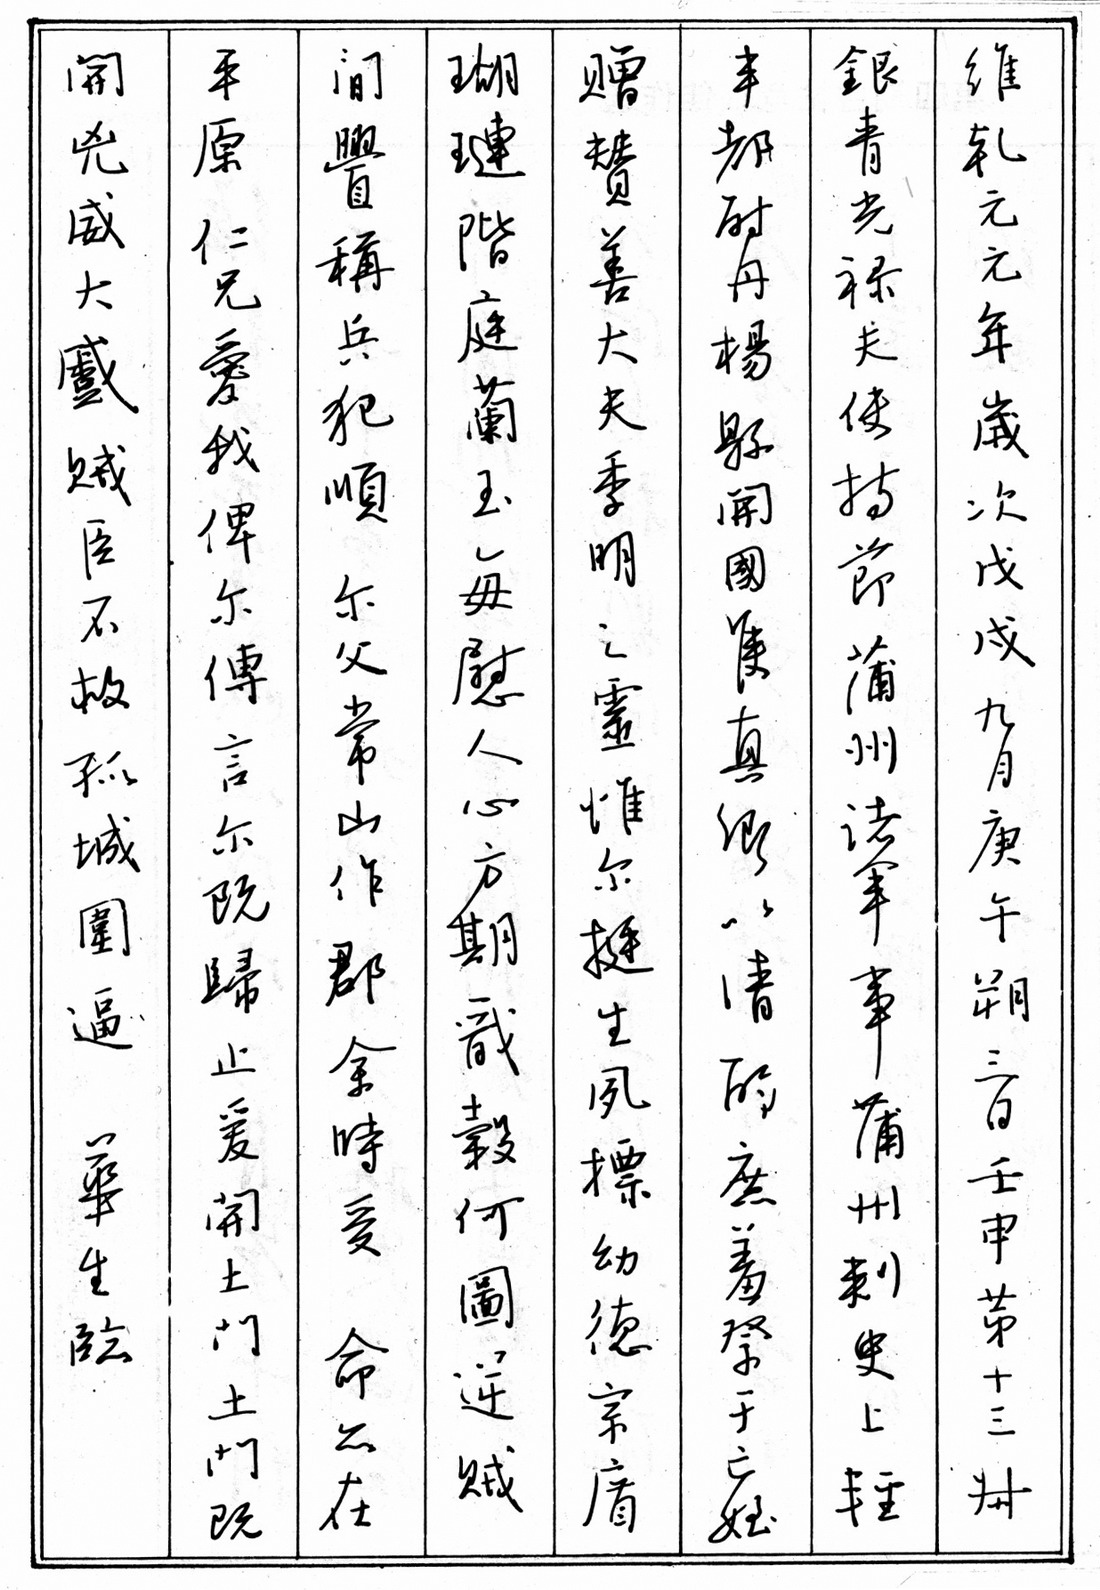 維乾元元年歲次戊戌九月庚午朔三日壬申第十三叔
銀青光祿夫使持節蒲州諸軍事蒲州刺史上輕
車都尉丹楊縣開國侯真卿以清酌庶羞祭于亡姪
贈贊善大夫季明之靈惟尔挺生夙標幼德宗廟
瑚璉階庭蘭玉每慰人心方期戩穀何圖逆賊
間釁稱兵犯順尔父常山作郡余時受命亦在
平原仁兄愛我俾尔傳言尔既歸止爰開土門土門既
開兇威大蹙賊臣不救孤城圍逼 華生臨